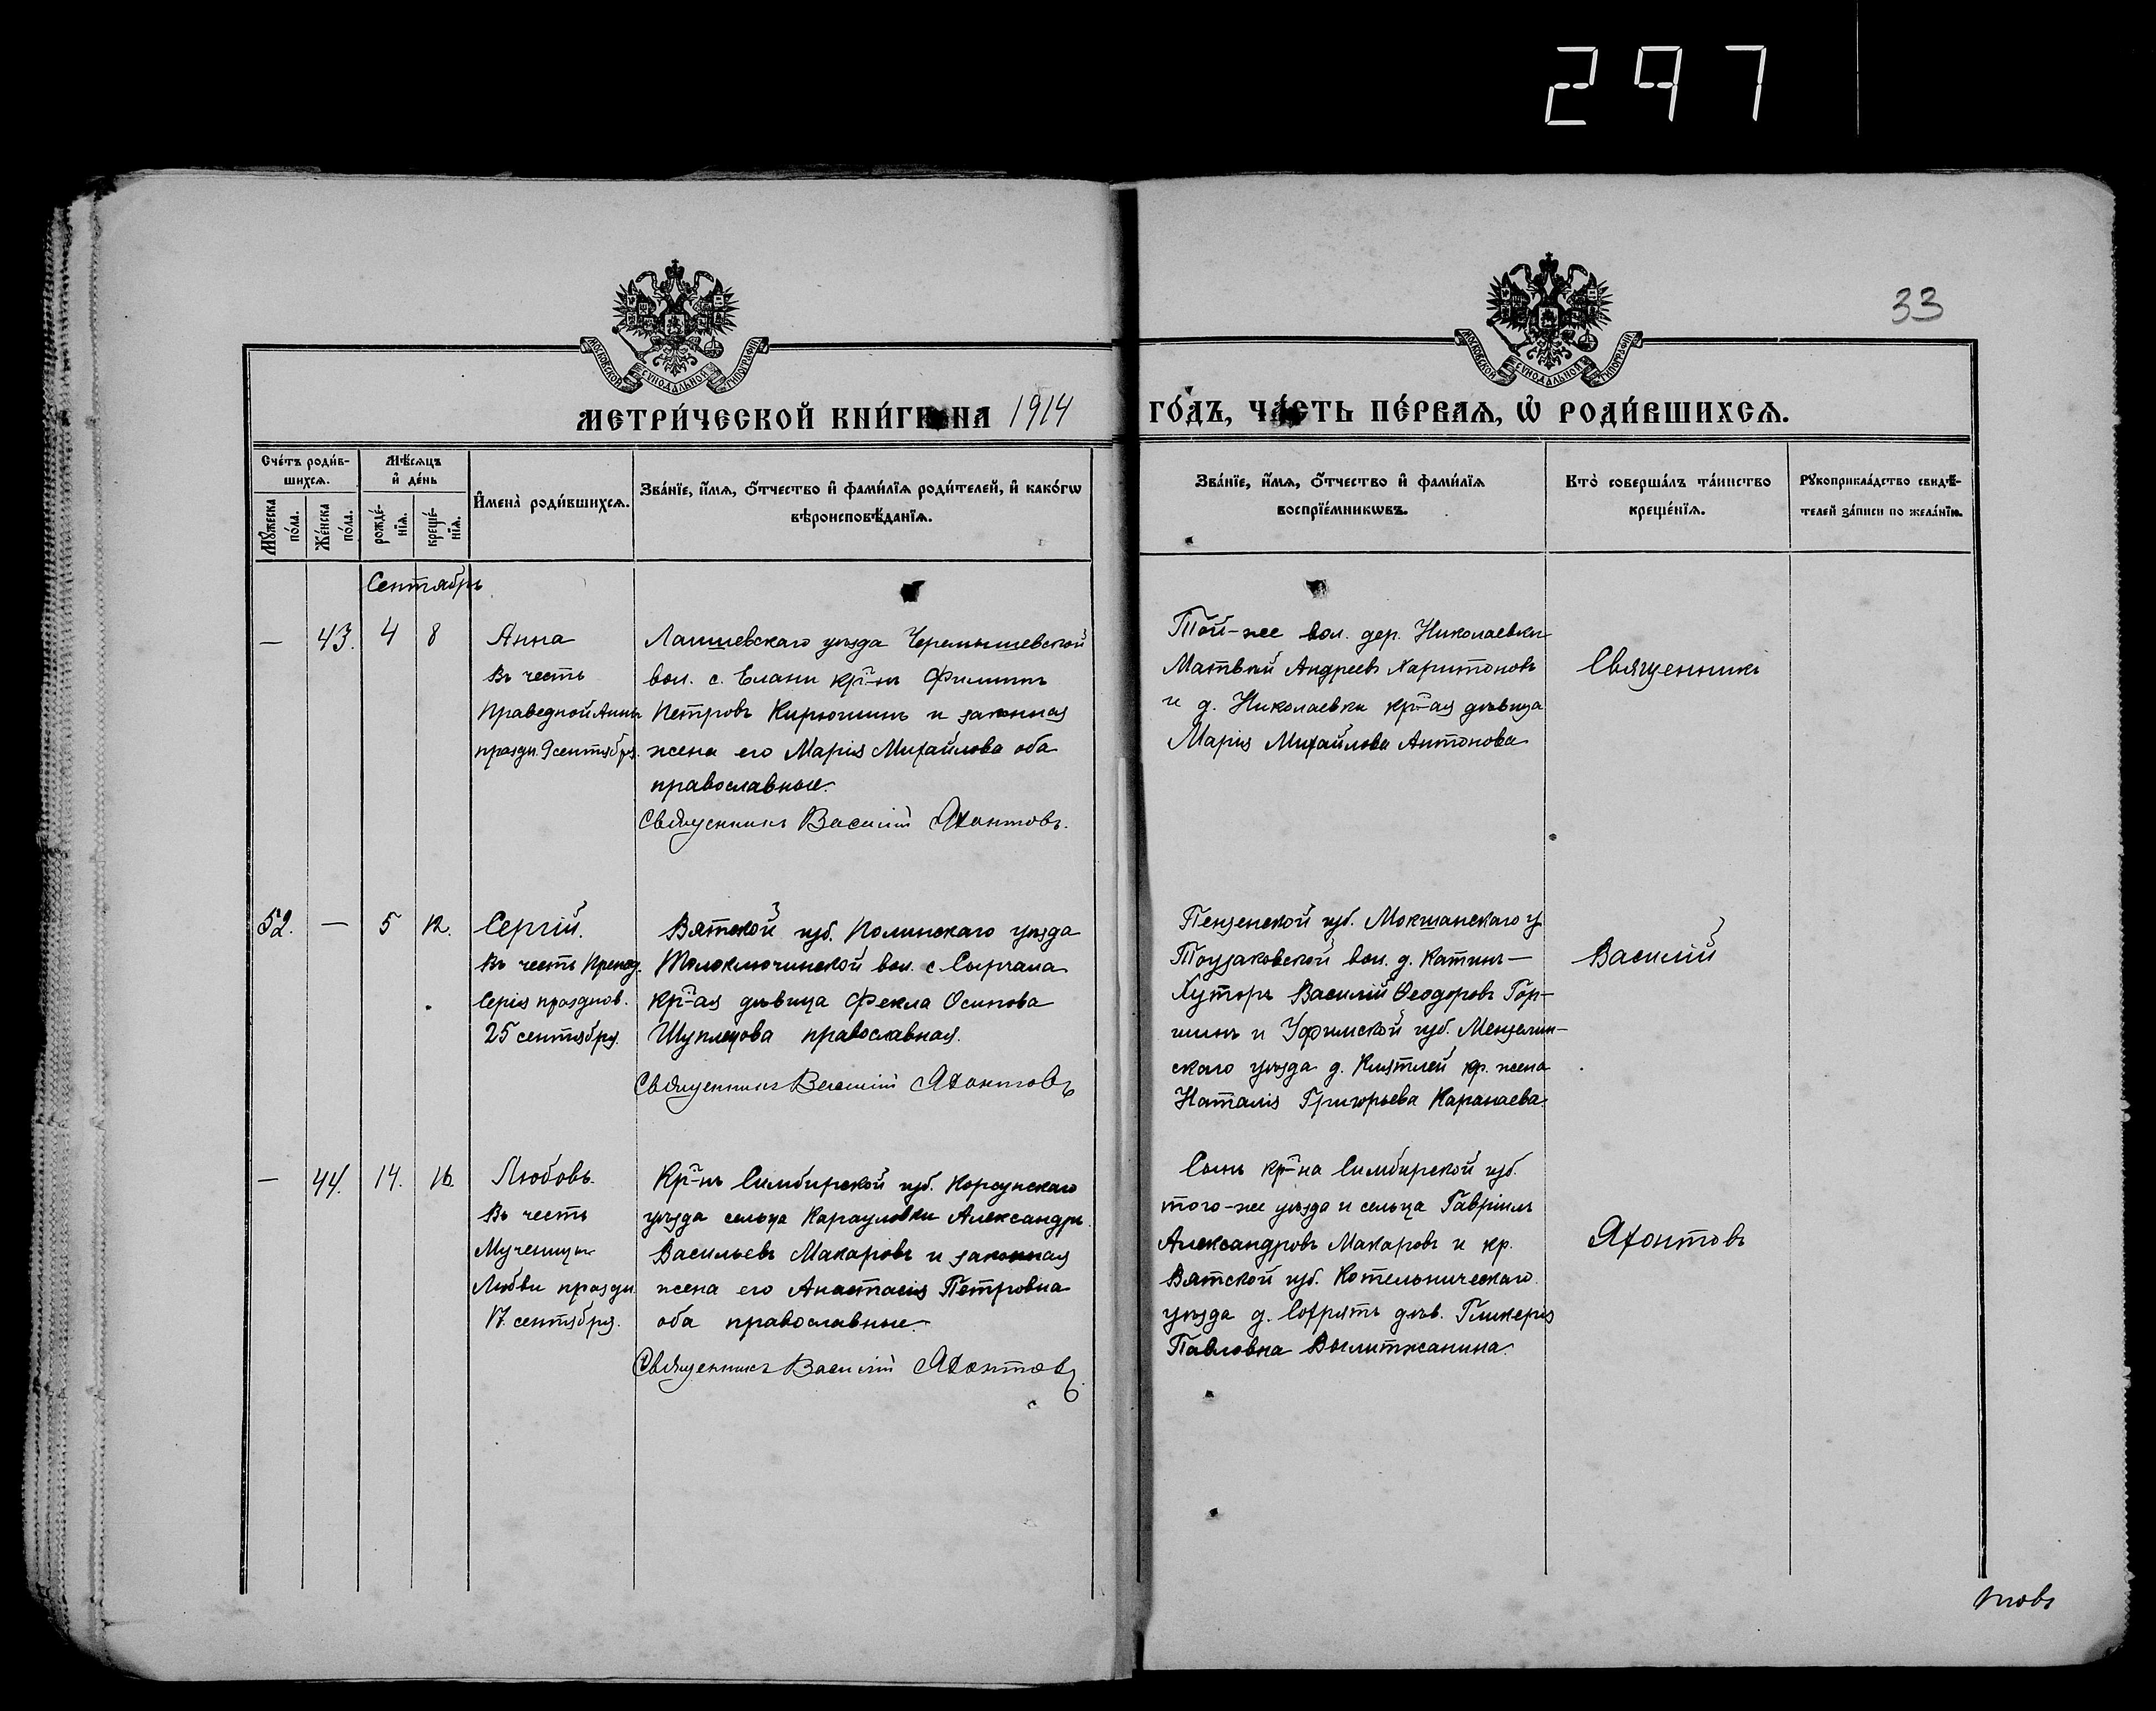 297
33
МОСКОВСКОЙ СУНОДАЛЬНОЙ ТИПОГРАФІИ
МОСКОВСКОЙ СУНОДАЛЬНОЙ ТИПОГРАФІИ
МЕТРИ́ЧЕСКОЙ КНИ́ГИ НА 1914 ГО́ДЪ, ЧА́СТЬ ПЕ́РВАЯ, Ѡ҆ РОДИ́ВШИХСЯ.
Сче́тъ роди́в-
шихся.
Мꙋ́жеска
по́ла.
Же́нска
по́ла.
Мѣ́сяцъ
и҆ де́нь
рожде́-
нїя.
креще́-
нїя.
И҆мена̀ роди́вшихся.
Зва́нїе, и҆́мя, ѻ҆́тчество и҆ фами́лїя роди́телей, и҆ како́гѡ
вѣроисповѣ́данїя.
Зва́нїе, и҆́мя, ѻ҆́тчество и҆ фами́лїя
воспрїе́мникѡвъ.
Кто̀ соверша́лъ та́инство
креще́нїя.
Рꙋкоприкла́дство свидѣ́-
телей за́писи по жела́нїю.
Сентябрь
— 43. 4 8
Анна
Въ честь
Праведной Анны
праздн. 9 сентября.
Лаишевскаго уѣзда Черемышевской
вол. с. Елани кр-нъ Филиппъ
Петровъ Кирюшинъ и законная
жена его Марія Михайлова оба
православные.
Священникъ Василій Яхонтовъ.
Той-же вол. дер. Николаевки
Матвѣй Андреевъ Харитоновъ
и д. Николаевки кр-ая дѣвица
Марія Михайлова Антонова
Священникъ
52. — 5 12.
Сергій.
Въ честь Препод.
Сергія празднов.
25 сентября.
Вятской губ. Нолинскаго уѣзда
вол. с.
кр-ая дѣвица Фекла Осипова
Шуплецова православная.
Священникъ Василій Яхонтовъ
Пензенской губ. Мокшанскаго у.
вол. д. Катинъ-
Хуторъ Василій Ѳеодоровъ Гор-
шинъ и Уфимской губ. Мензелин-
скаго уѣзда д. кр. жена
Наталія Григорьева Каранаева.
Василій
— 44. 14. 16.
Любовь.
Въ честь
Мученицы
Любви праздн.
17. сентября.
Кр-нъ Симбирской губ. Корсунскаго
уѣзда сельца Карауловки Александръ
Васильевъ Макаровъ и законная
жена его Анастасія Петровна
оба православные.
Священникъ Василій Яхонтовъ
Сынъ кр-на Симбирской губ.
того-же уѣзда и сельца Гавріилъ
Александровъ Макаровъ и кр.
Вятской губ. Котельническаго
уѣзда д. дѣв. Гликерія
Павловна
Яхонтовъ
товъ